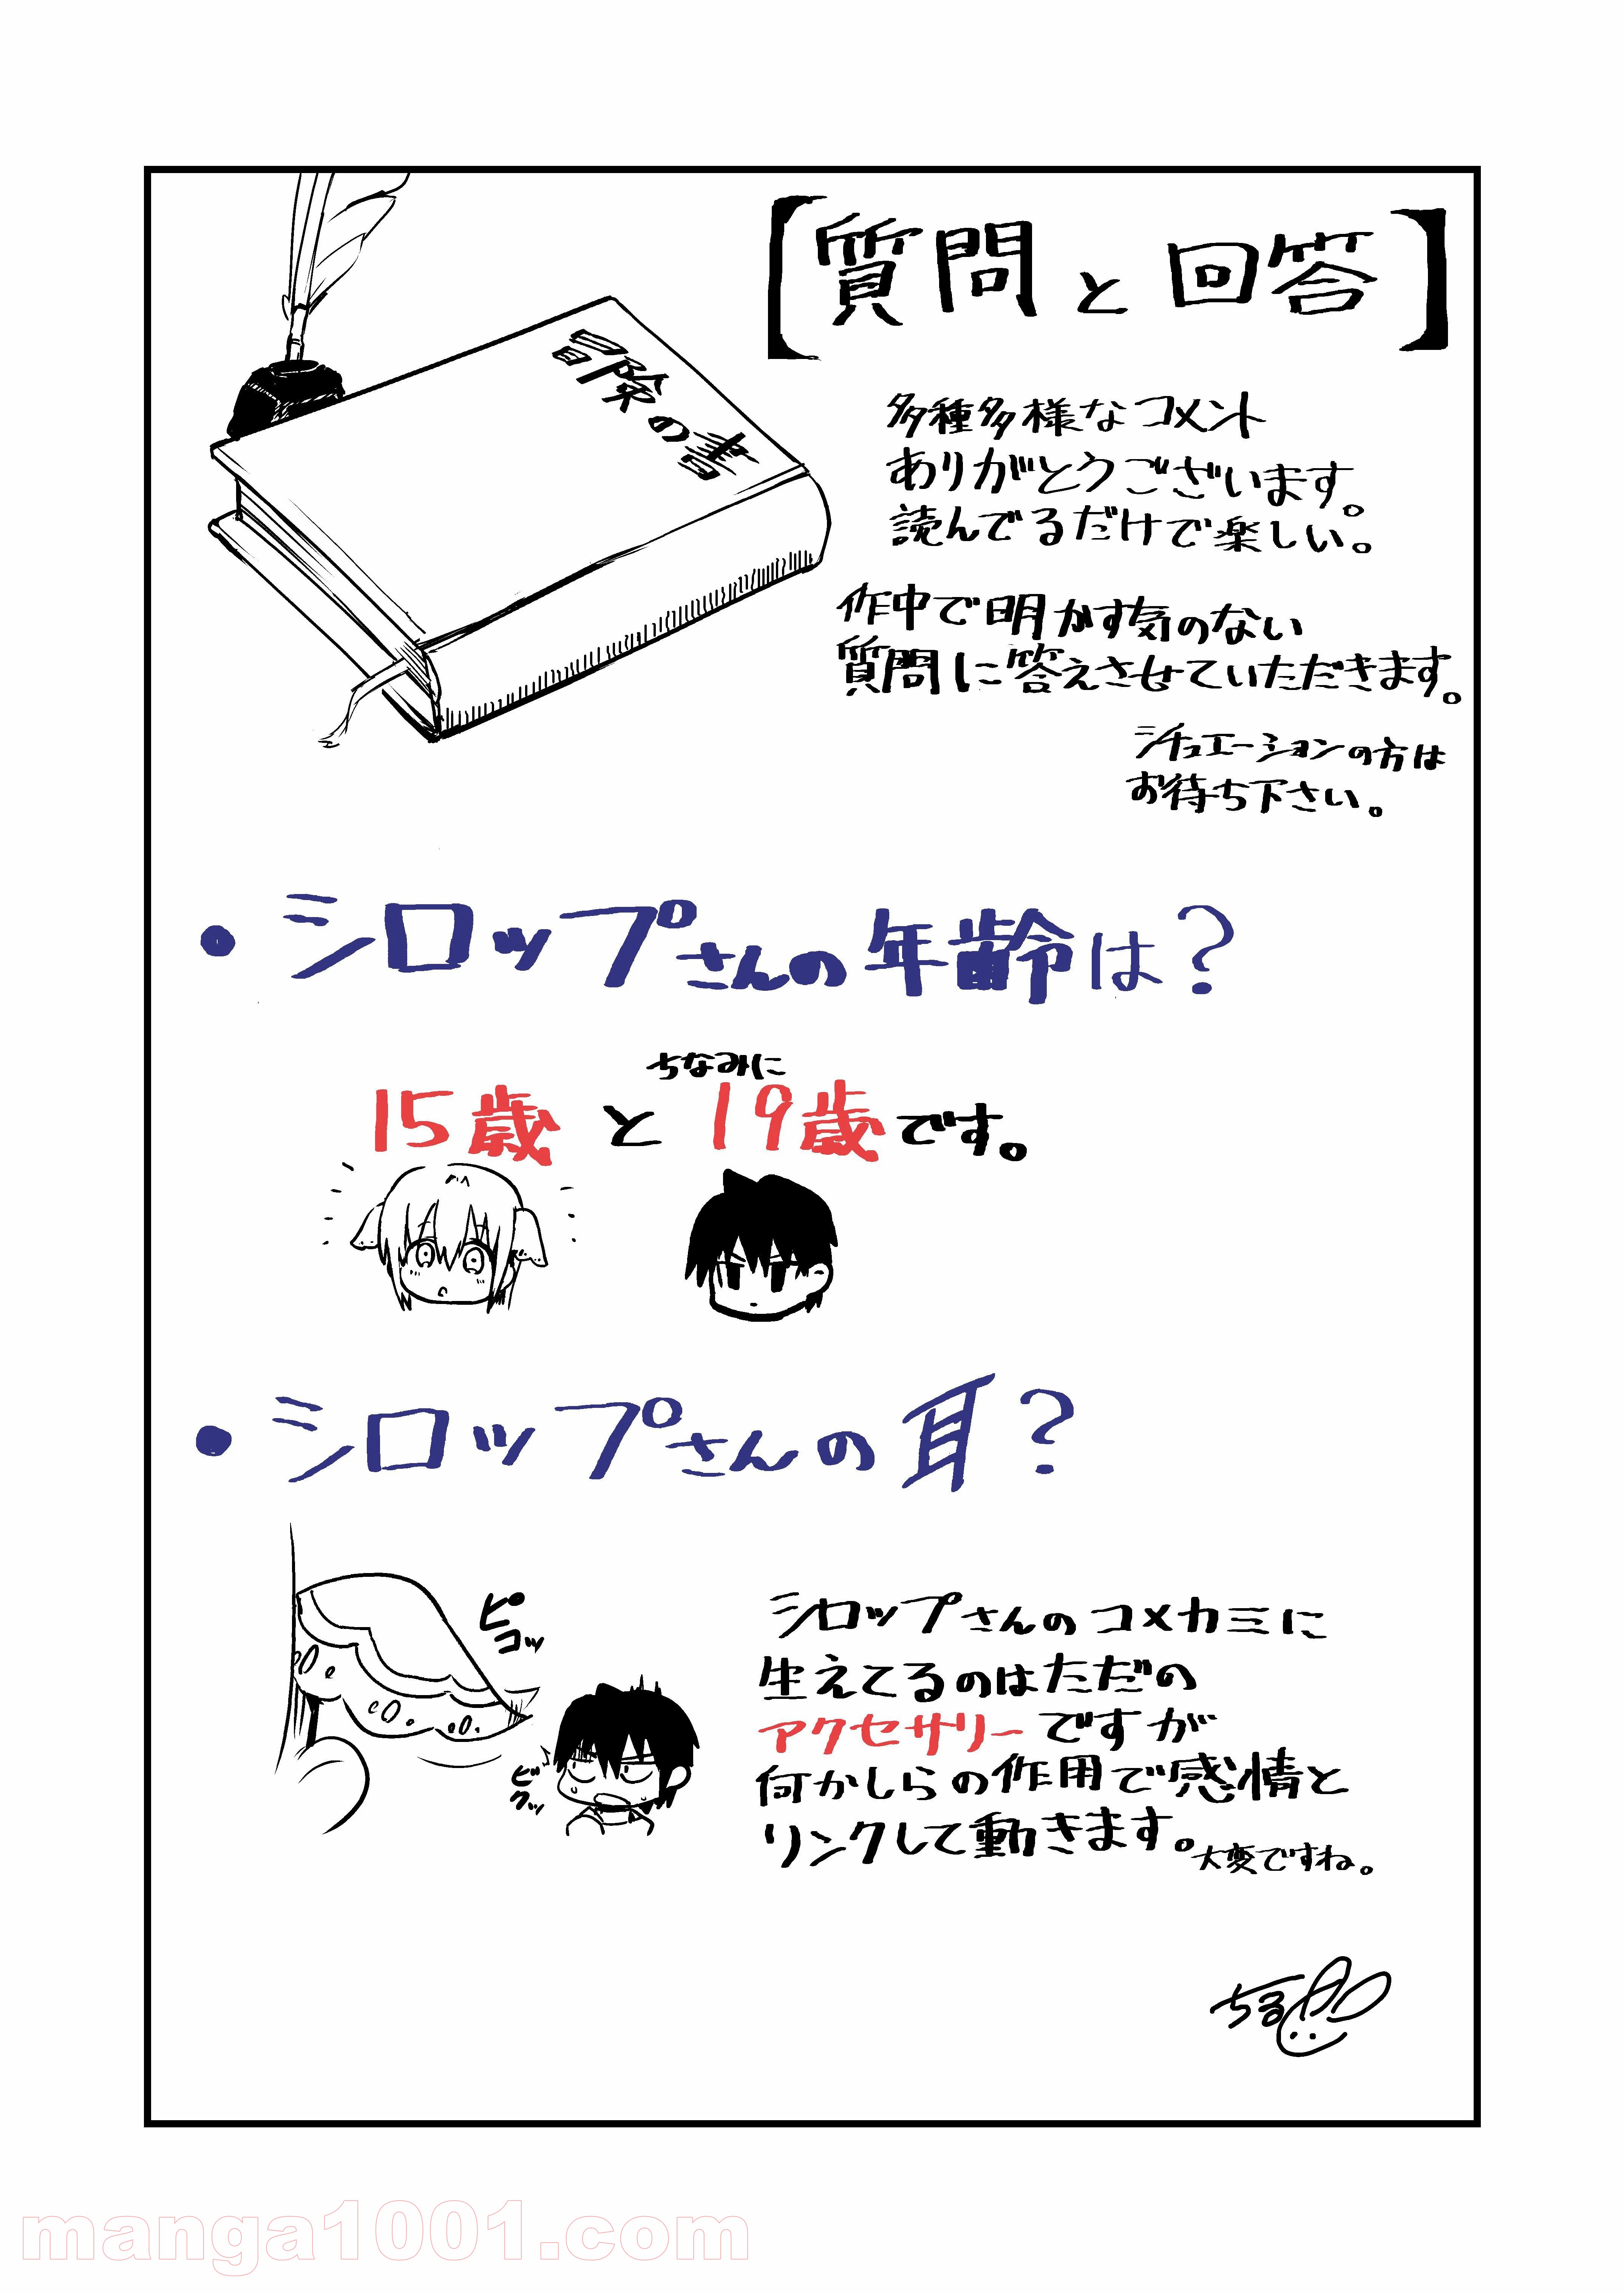 【質問と回答】
冒険の書
多種多様なコメント
ありがとうございます。
読んでるだけで楽しい。
作中で明かす気のない
質問に答えさせていただきます。
シチュエーションの方は
お待ち下さい。
・シロップさんの年齢は？
ちなみに
15歳と19歳です。
・シロップさんの耳？
ピコッ
ビクッ
シロップさんのコメカミに
生えてるのはただの
アクセサリーですが
何かしらの作用で感情と
リンクして動きます。
大変ですね。
ちる
manga1001.com